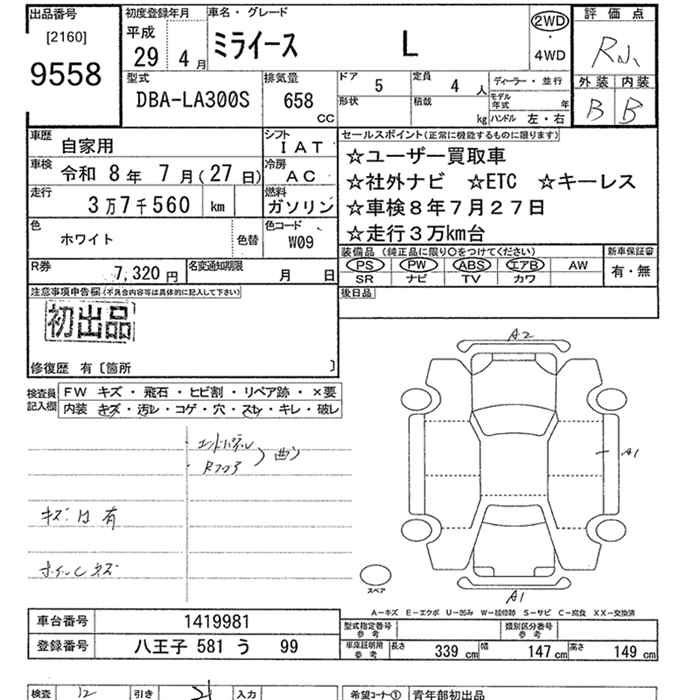 出品番号 初度登録年月 車名・グレード 2WD 評価点
[2160] 平成 ミライース L
9558 29年 4月 4WD 外装 内装
型式 排気量 ドア 5 定員 4人 ディーラー・並行 B B
DBA-LA300S 658 cc 形状 積載 kg モデル年式 年 ハンドル 左・右
車歴 自家用 シフト IAT セールスポイント(正常に機能するものに限ります)
車検 令和 8年 7月(27日) 冷房 AC ☆ユーザー買取車
走行 3万7千560 km 燃料 ガソリン ☆社外ナビ ☆ETC ☆キーレス
☆車検8年7月27日
色 ホワイト 色替 色コード W09 ☆走行3万km台
R券 7,320円 名変通知期限 月 日 装備品(純正品に限り○をつけてください) 新車保証書
PS PW ABS エアB AW 有・無
SR ナビ TV カワ
注意事項申告欄(不具合内容等は具体的に記入して下さい) 後日品
初出品
修復歴 有〔箇所 〕
検査員記入欄 FW キズ・飛石・ヒビ割・リペア跡・×要
内装 キズ・汚レ・コゲ・穴・スレ・キレ・破レ
A2
・エンドパネル
・Rフロア 曲り
A1
キズ凹有
ホイルキズ
スペア
A1
A-キズ E-エクボ U-凹み W-補修跡 S-サビ C-腐食 XX-交換済
車台番号 1419981 型式指定番号 参考 類別区分番号 参考
登録番号 八王子 581 う 99 車庫証明用 参考 長さ 339cm 幅 147cm 高さ 149cm
検査 引き 入力 希望コーナー① 青年部初出品